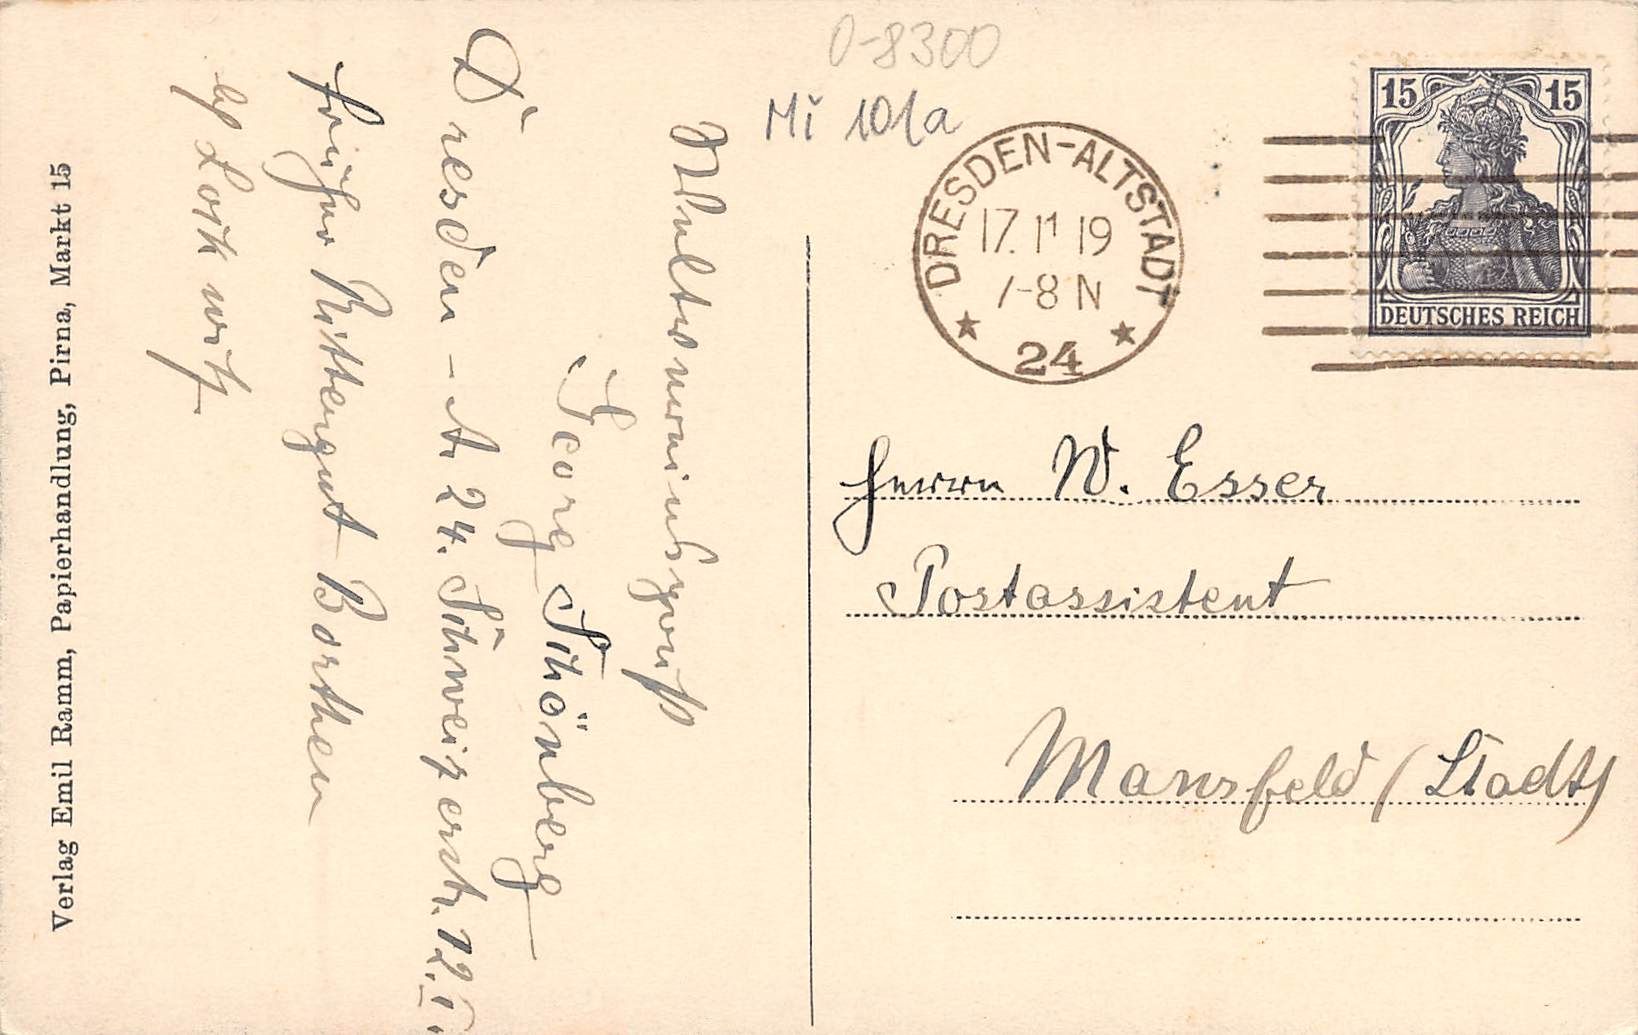 0-8300
Mi 101a
DRESDEN-ALTSTADT
17.11 19
7-8 N
* 24 *
15 15
DEUTSCHES REICH
Herrn W. Esser
Postassistent
Mansfeld (Stadt)
Georg Schönberg
Dresden-A 24. Schweizerstr. 12. I.
früher Rittergut Borthen
Verlag Emil Ramm, Papierhandlung, Pirna, Markt 15